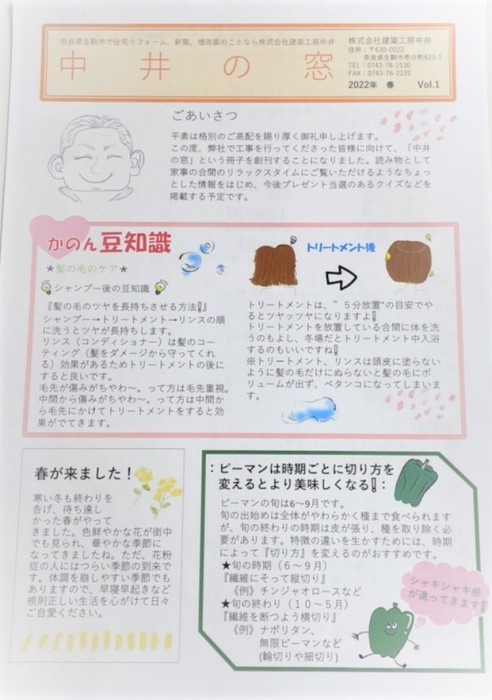 奈良県生駒市で住宅リフォーム、新築、増改築のことなら株式会社建築工房中井
中井の窓
株式会社建築工房中井
住所：〒630-0222
奈良県生駒市壱分町623-1
TEL：0743-76-2130
FAX：0743-76-2131
2022年 春 Vol.1
ごあいさつ
平素は格別のご高配を賜り厚く御礼申し上げます。
この度、弊社で工事を行ってくださった皆様に向けて、「中井
の窓」という冊子を創刊することになりました。読み物として
家事の合間のリラックスタイムにご覧いただけるようなちょっ
とした情報をはじめ、今後プレゼント当選のあるクイズなどを
掲載する予定です。
かのん豆知識
★髪の毛のケア★
シャンプー後の豆知識
『髪の毛のツヤを長持ちさせる方法‼』
シャンプー→トリートメント→リンスの順
に洗うとツヤが長持ちします。
リンス（コンディショナー）は髪のコー
ティング（髪をダメージから守ってくれ
る）効果があるためトリートメントの後に
すると良いです。
毛先が傷みがちやわ～。って方は毛先重視。
中間から傷みがちやわ～。って方は中間か
ら毛先にかけてトリートメントをすると効
果がでてきます。
トリートメント後
トリートメントは、”５分放置”の目安でや
るとツヤッツヤになりますよ‼
トリートメントを放置している合間に体を洗
うのもよし、冬場だとトリートメント中入浴
するのもいいですね‼
※トリートメント、リンスは頭皮に塗らない
ように髪の毛だけにぬらないと髪の毛にボ
リュームが出ず、ペタンコになってしまいま
す。
春が来ました！
寒い冬も終わりを
告げ、待ち遠し
かった春がやって
きました。色鮮やかな花が街中
でも見られ、華やかな季節に
なってきましたね。ただ、花粉
症の人にはつらい季節の到来で
す。体調を崩しやすい季節でも
ありますので、早寝早起きなど
規則正しい生活を心がけて日々
ご自愛ください。
：ピーマンは時期ごとに切り方を
変えるとより美味しくなる‼：
ピーマンの旬は6～9月です。
旬の出始めは全体がやわらかく種まで食べられます
が、旬の終わりの時期は皮が張り、種を取り除く必
要があります。特徴の違いを生かすためには、時期
によって『切り方』を変えるのがおすすめです。
★旬の時期（６～９月）
『繊維にそって縦切り』
《例》チンジャオロースなど
★旬の終わり（１０～５月）
『繊維を断つよう横切り』
《例》ナポリタン、
無限ピーマンなど
(輪切りや細切り)
シャキシャキ感
が違ってきます‼